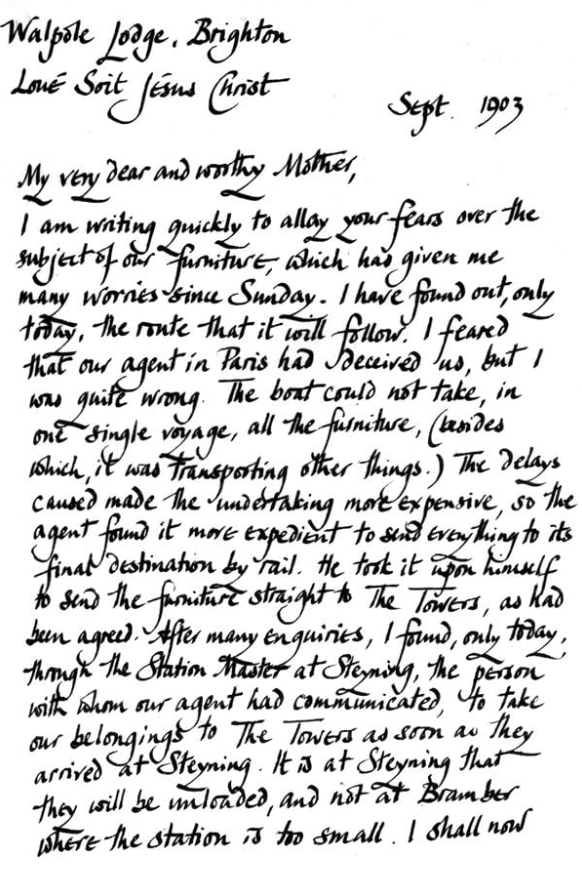 Walpole Lodge, Brighton
Loué Soit Jésus Christ
Sept. 1903
My very dear and worthy Mother,
I am writing quickly to allay your fears over the
subject of our furniture, which has given me
many worries since Sunday. I have found out, only
today, the route that it will follow. I feared
that our agent in Paris had deceived us, but I
was quite wrong. The boat could not take, in
one single voyage, all the furniture, (besides
which, it was transporting other things.) The delays
caused made the undertaking more expensive, so the
agent found it more expedient to send everything to its
final destination by rail. He took it upon himself
to send the furniture straight to The Towers, as had
been agreed. After many enquiries, I found, only today,
through the Station Master at Steyning, the person
with whom our agent had communicated, to take
our belongings to The Towers as soon as they
arrived at Steyning. It is at Steyning that
they will be unloaded, and not at Bramber
where the station is too small. I shall now